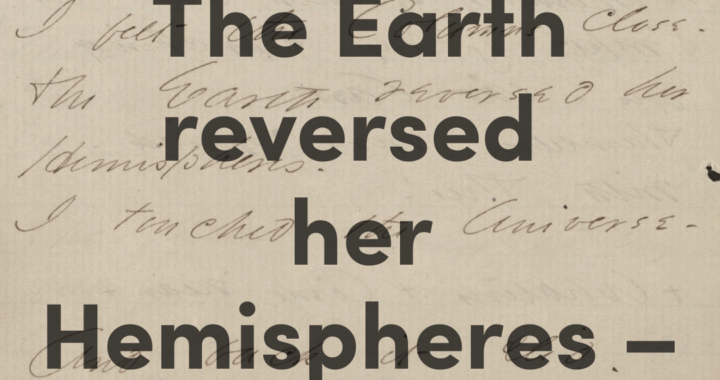 The Earth
reversed
her
Hemispheres –
I felt the Columns close -
The Earth reversed her
Hemispheres -
I touched the Universe -
And back it slid